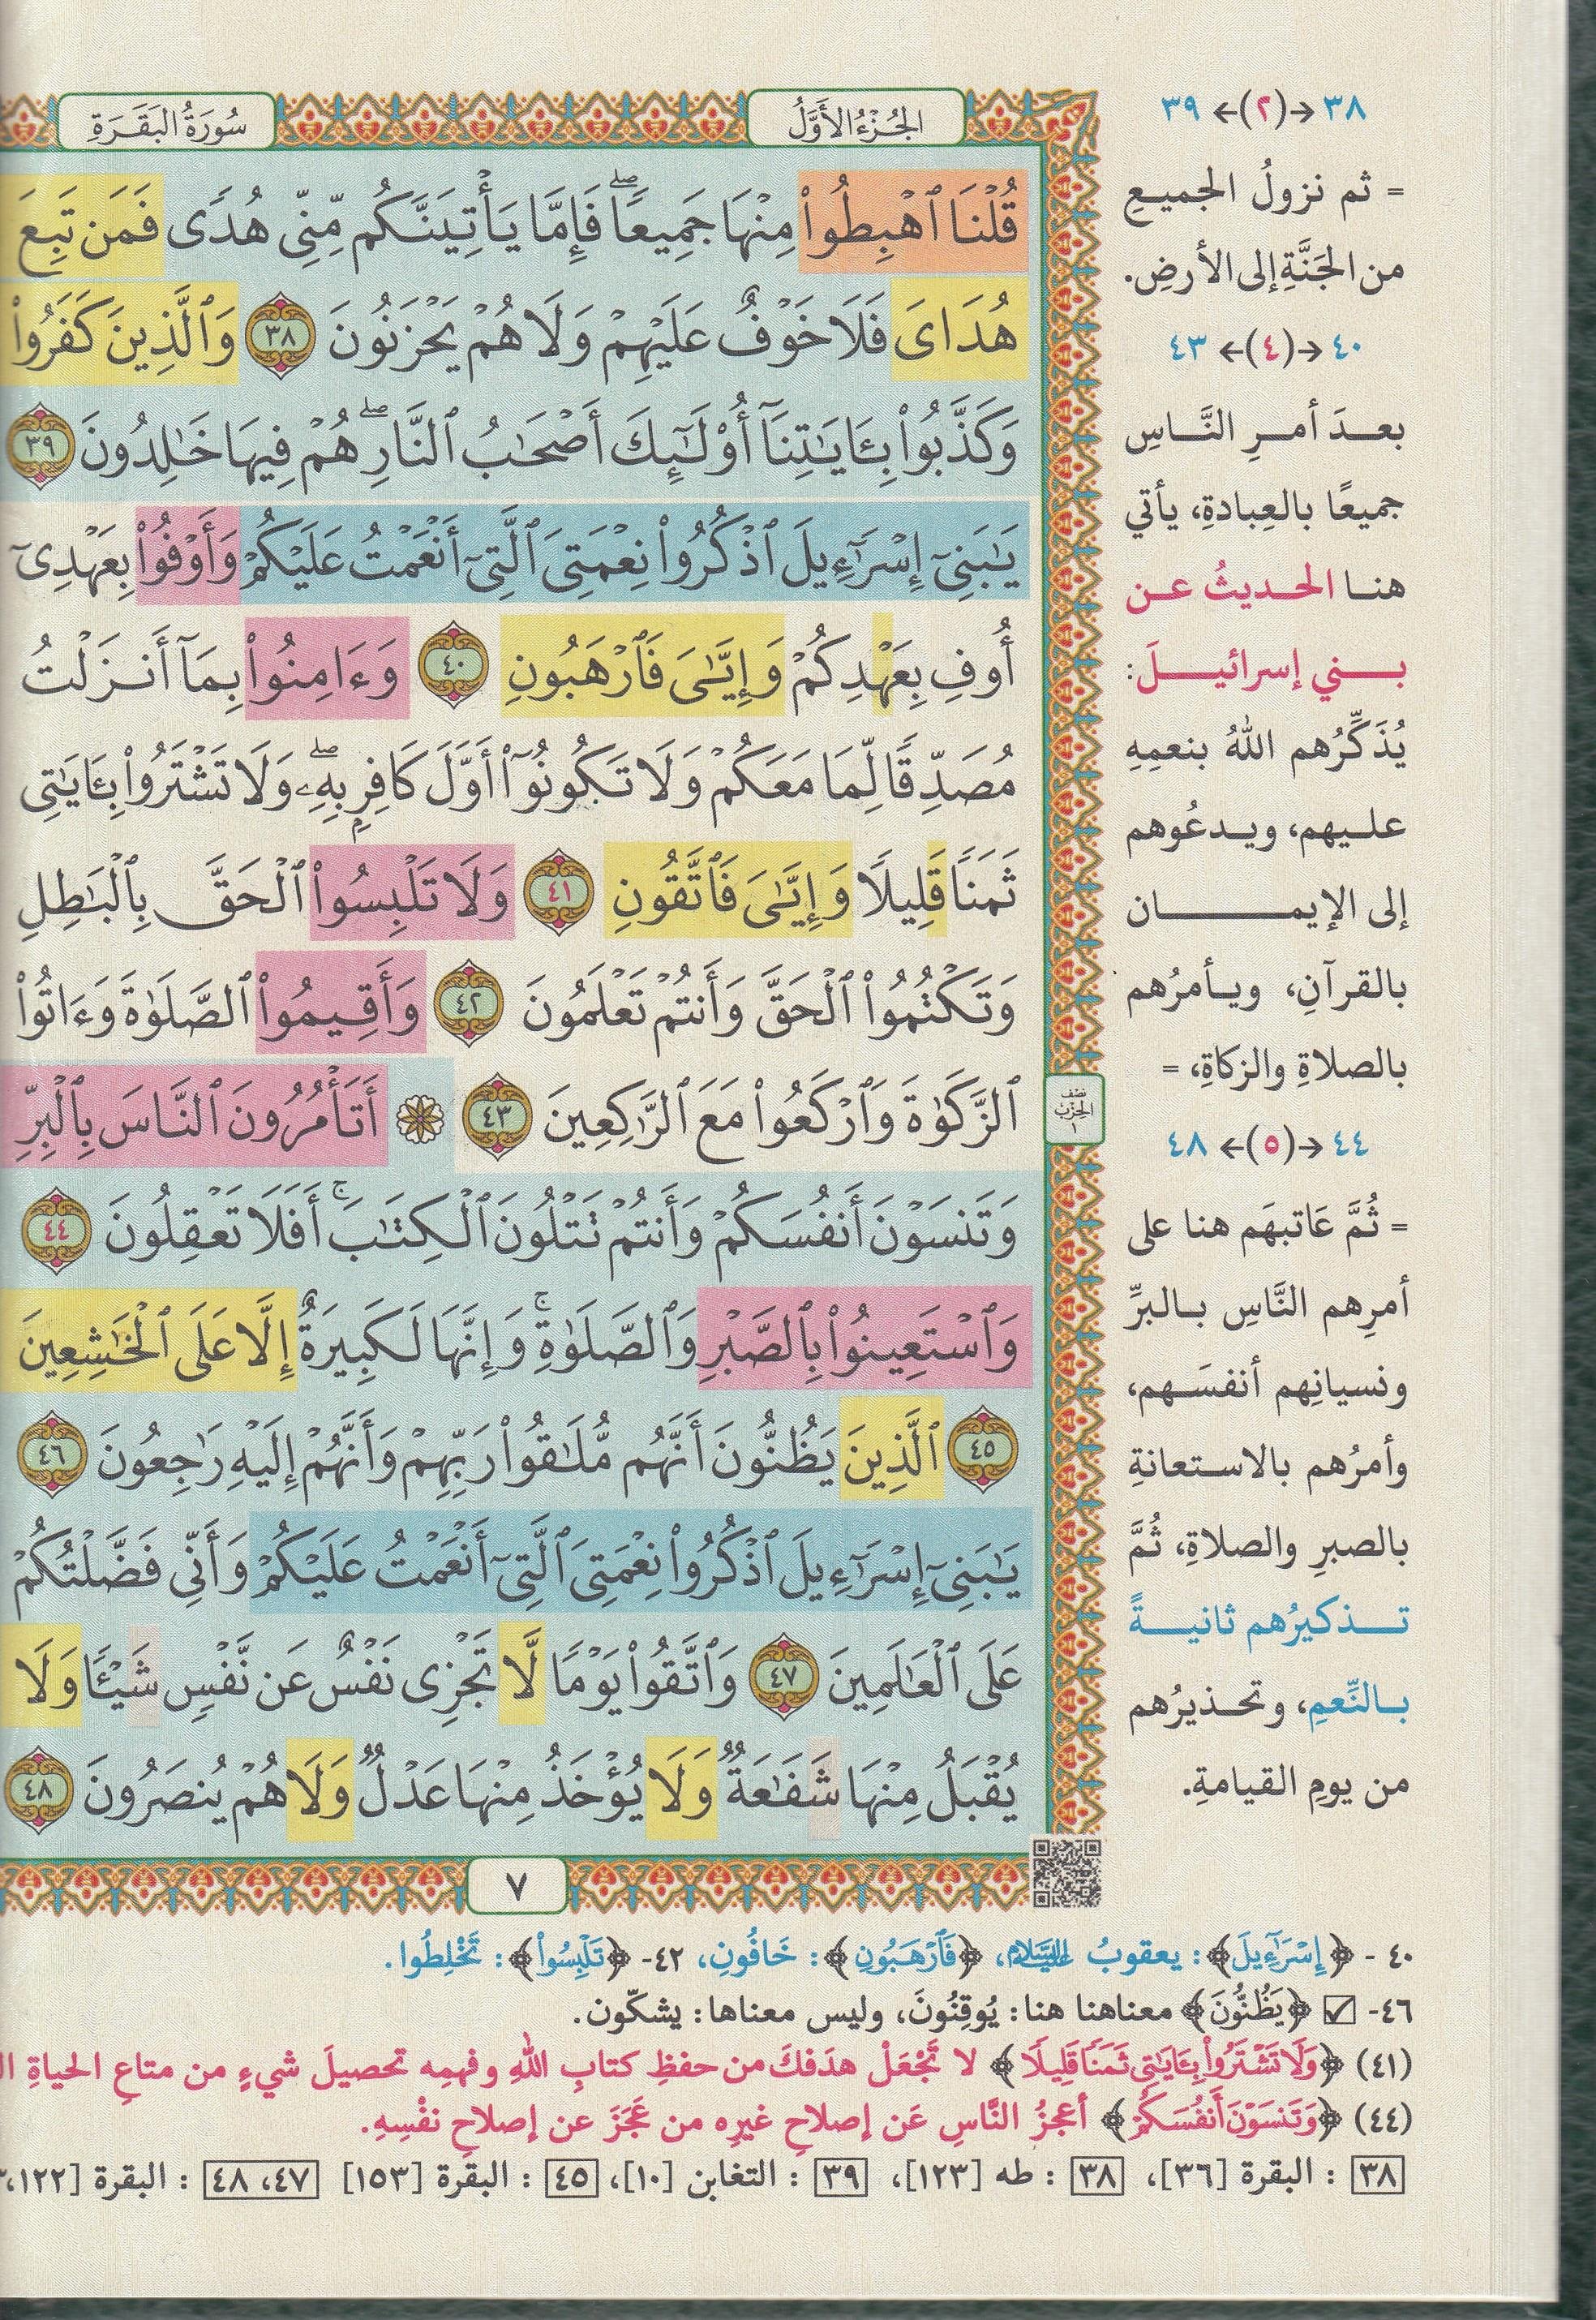 الجُزْءُ الأَوَّلُ
سُورَةُ البَقَرَةِ
قُلْنَا ٱهْبِطُوا۟ مِنْهَا جَمِيعًا ۖ فَإِمَّا يَأْتِيَنَّكُم مِّنِّى هُدًى فَمَن تَبِعَ
هُدَاىَ فَلَا خَوْفٌ عَلَيْهِمْ وَلَا هُمْ يَحْزَنُونَ ٣٨ وَٱلَّذِينَ كَفَرُوا۟
وَكَذَّبُوا۟ بِـَٔايَـٰتِنَآ أُو۟لَـٰٓئِكَ أَصْحَـٰبُ ٱلنَّارِ ۖ هُمْ فِيهَا خَـٰلِدُونَ ٣٩
يَـٰبَنِىٓ إِسْرَٰٓءِيلَ ٱذْكُرُوا۟ نِعْمَتِىَ ٱلَّتِىٓ أَنْعَمْتُ عَلَيْكُمْ وَأَوْفُوا۟ بِعَهْدِىٓ
أُوفِ بِعَهْدِكُمْ وَإِيَّـٰىَ فَٱرْهَبُونِ ٤٠ وَءَامِنُوا۟ بِمَآ أَنزَلْتُ
مُصَدِّقًا لِّمَا مَعَكُمْ وَلَا تَكُونُوٓا۟ أَوَّلَ كَافِرٍۭ بِهِۦ ۖ وَلَا تَشْتَرُوا۟ بِـَٔايَـٰتِى
ثَمَنًا قَلِيلًا وَإِيَّـٰىَ فَٱتَّقُونِ ٤١ وَلَا تَلْبِسُوا۟ ٱلْحَقَّ بِٱلْبَـٰطِلِ
وَتَكْتُمُوا۟ ٱلْحَقَّ وَأَنتُمْ تَعْلَمُونَ ٤٢ وَأَقِيمُوا۟ ٱلصَّلَوٰةَ وَءَاتُوا۟
ٱلزَّكَوٰةَ وَٱرْكَعُوا۟ مَعَ ٱلرَّٰكِعِينَ ٤٣ ۞ أَتَأْمُرُونَ ٱلنَّاسَ بِٱلْبِرِّ
وَتَنسَوْنَ أَنفُسَكُمْ وَأَنتُمْ تَتْلُونَ ٱلْكِتَـٰبَ ۚ أَفَلَا تَعْقِلُونَ ٤٤
وَٱسْتَعِينُوا۟ بِٱلصَّبْرِ وَٱلصَّلَوٰةِ ۚ وَإِنَّهَا لَكَبِيرَةٌ إِلَّا عَلَى ٱلْخَـٰشِعِينَ
٤٥ ٱلَّذِينَ يَظُنُّونَ أَنَّهُم مُّلَـٰقُوا۟ رَبِّهِمْ وَأَنَّهُمْ إِلَيْهِ رَٰجِعُونَ ٤٦
يَـٰبَنِىٓ إِسْرَٰٓءِيلَ ٱذْكُرُوا۟ نِعْمَتِىَ ٱلَّتِىٓ أَنْعَمْتُ عَلَيْكُمْ وَأَنِّى فَضَّلْتُكُمْ
عَلَى ٱلْعَـٰلَمِينَ ٤٧ وَٱتَّقُوا۟ يَوْمًا لَّا تَجْزِى نَفْسٌ عَن نَّفْسٍ شَيْـًٔا وَلَا
يُقْبَلُ مِنْهَا شَفَـٰعَةٌ وَلَا يُؤْخَذُ مِنْهَا عَدْلٌ وَلَا هُمْ يُنصَرُونَ ٤٨
نصف
الحزب
١
٧
٣٨ →(٢)← ٣٩
= ثم نزولُ الجميعِ
من الجَنَّةِ إلى الأرضِ.
٤٠ →(٤)← ٤٣
بعدَ أمرِ النَّاسِ
جميعًا بالعِبادةِ، يأتي
هنا الحديثُ عن
بني إسرائيلَ:
يُذَكِّرُهم اللهُ بنعمِهِ
عليهم، ويدعُوهم
إلى الإيمان
بالقرآنِ، ويأمرُهم
بالصلاةِ والزكاةِ، =
٤٤ →(٥)← ٤٨
= ثُمَّ عَاتبهَم هنا على
أمرِهم النَّاسِ بالبرِّ
ونسيانِهم أنفسَهم،
وأمرُهم بالاستعانةِ
بالصبرِ والصلاةِ، ثُمَّ
تذكيرُهم ثانيةً
بالنِّعمِ، وتحذيرُهم
من يومِ القيامةِ.
٤٠ - ﴿إِسْرَٰٓءِيلَ﴾: يعقوبُ عليه السلام، ﴿فَٱرْهَبُونِ﴾: خَافُونِ، ٤٢- ﴿تَلْبِسُوا۟﴾: تَخْلِطُوا.
٤٦- ☑ ﴿يَظُنُّونَ﴾ معناهنا هنا: يُوقِنُونَ، وليس معناها: يشكّون.
(٤١) ﴿وَلَا تَشْتَرُوا۟ بِـَٔايَـٰتِى ثَمَنًا قَلِيلًا﴾ لا تَجْعَلْ هدَفكَ من حفظِ كتابِ اللهِ وفهمِه تحصيلَ شيءٍ من متاعِ الحياةِ
(٤٤) ﴿وَتَنسَوْنَ أَنفُسَكُمْ﴾ أعجزُ النَّاسِ عَن إصلاحِ غيرِه من عَجَزَ عن إصلاحِ نفْسِهِ.
٣٨ : البقرة [٣٦]، ٣٨ : طه [١٢٣]، ٣٩ : التغابن [١٠]، ٤٥ : البقرة [١٥٣] ٤٧، ٤٨ : البقرة [١٢٢،